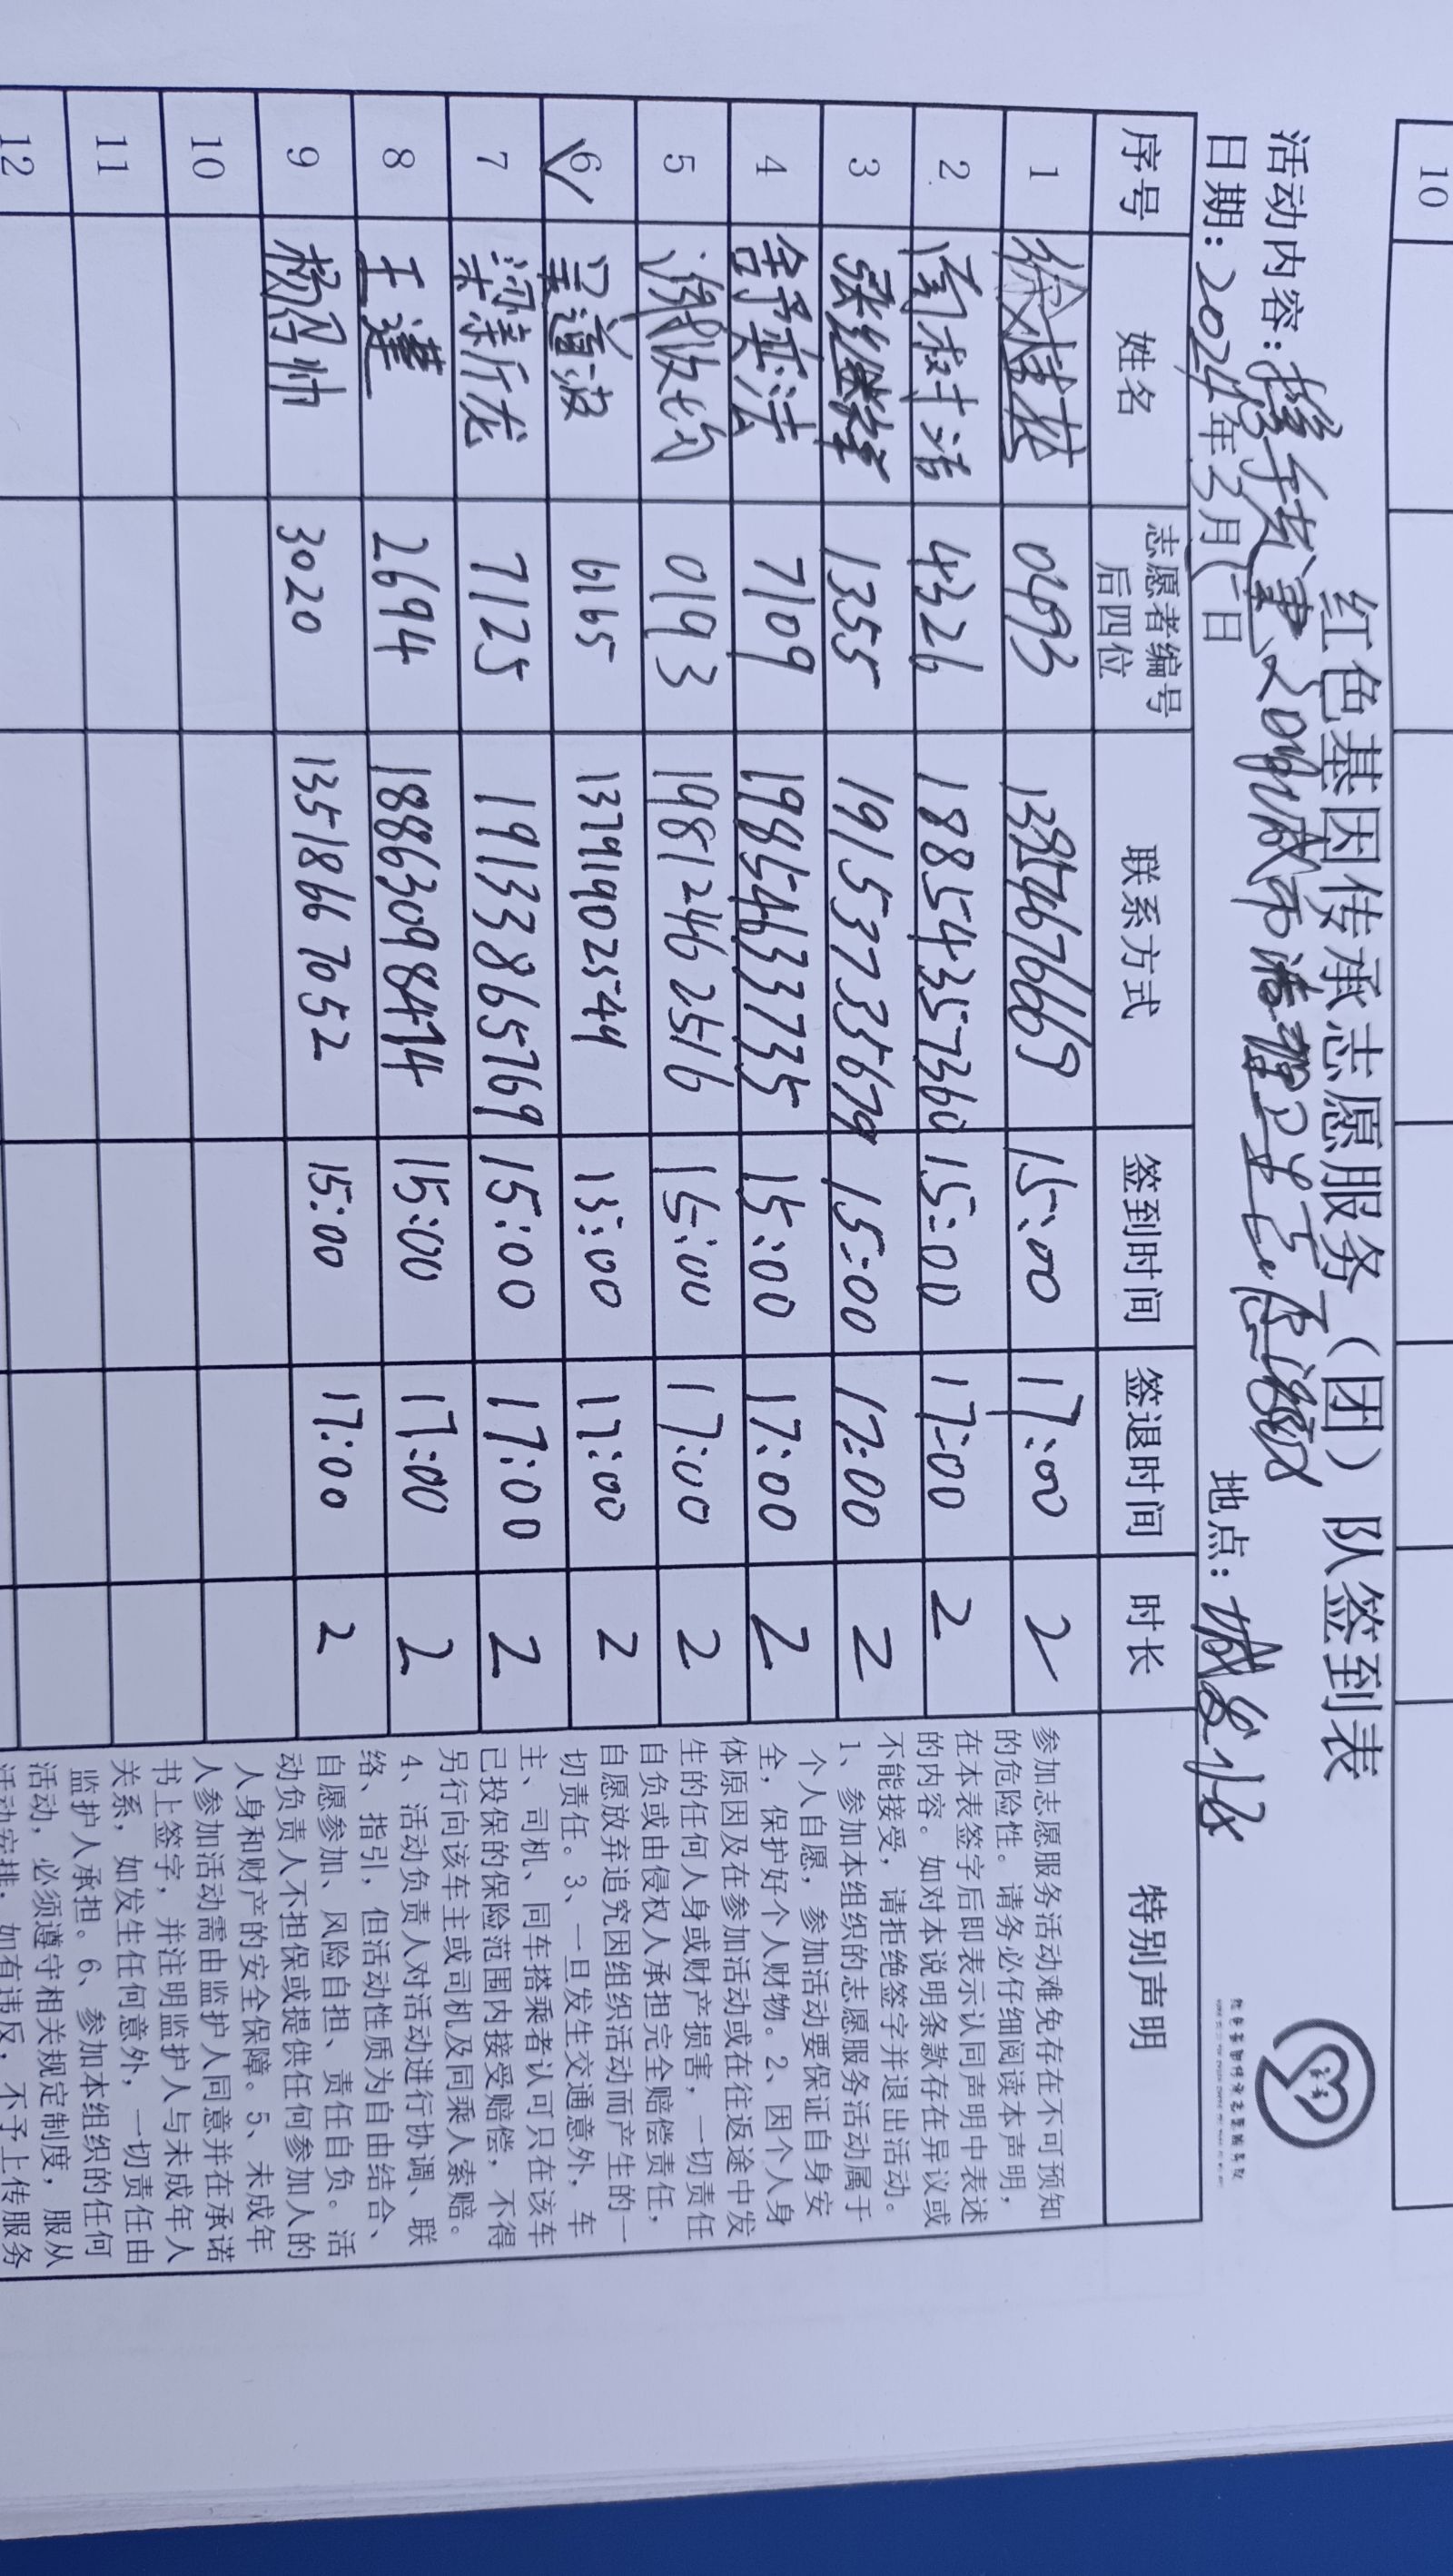 10
红色基因传承志愿服务（团）队签到表
活动内容：携手共建
日期：2024年3月 日 地点：
序号 姓名 志愿者编号后四位 联系方式 签到时间 签退时间 时长 特别声明
1 0493 15:00 17:00 2
2 4326 18854357360 15:00 17:00 2
3 张继祥 1355 19153733567 15:00 17:00 2
4 7109 19854633735 15:00 17:00 2
5 0193 19812462516 15:00 17:00 2
6 6165 13791902544 15:00 17:00 2
7 梁新龙 7125 19133865769 15:00 17:00 2
8 王莲 2694 18863098474 15:00 17:00 2
9 杨丹帅 3020 13518667052 15:00 17:00 2
10
11
12
参加志愿服务活动难免存在不可预知
的危险性。请务必仔细阅读本声明，
在本表签字后即表示认同声明中表述
的内容。如对本说明条款存在异议或
不能接受，请拒绝签字并退出活动。
1、参加本组织的志愿服务活动属于
个人自愿，参加活动要保证自身安
全，保护好个人财物。2、因个人身
体原因及在参加活动或在往返途中发
生的任何人身或财产损害，一切责任
自负或由侵权人承担完全赔偿责任，
自愿放弃追究因组织活动而产生的一
切责任。3、一旦发生交通意外，车
主、司机、同车搭乘者认可只在该车
已投保的保险范围内接受赔偿，不得
另行向该车主或司机及同乘人索赔。
4、活动负责人对活动进行协调、联
络、指引，但活动性质为自由结合、
自愿参加、风险自担、责任自负。活
动负责人不担保或提供任何参加人的
人身和财产的安全保障。5、未成年
人参加活动需由监护人同意并在承诺
书上签字，并注明监护人与未成年人
关系，如发生任何意外，一切责任由
监护人承担。6、参加本组织的任何
活动，必须遵守相关规定制度，服从
活动安排，如有违反，不予上传服务